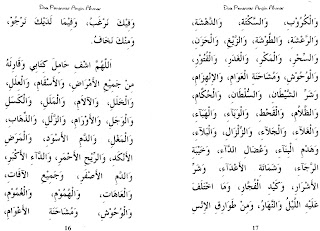 Doa Penawar Angin Ahmar
وَفِيْكَ نَرْغَبُ، وَفِيْمَا لَدَيْكَ نَرْجُوْ،
وَمِنْكَ نَخَافُ.
اَللّٰهُمَّ اشْفِ حَامِلَ كِتَابِيْ وَقَارِئَهُ
مِنْ جَمِيْعِ الْأَمْرَاضِ، وَالْأَسْقَامِ، وَالْعِلَلِ،
وَالْخَلَلِ، وَالْآلَامِ، وَالْمَلَلِ، وَالْكَسَلِ
وَالزَّلَلِ،
وَالدَّمِ الْأَسْوَدِ، وَالْمَرَضِ
الْأَنْكَدِ، وَالرِّيْحِ الْأَحْمَرِ، وَالدَّاءِ الْأَكْبَرِ،
وَالدَّمِ الْأَصْفَرِ، وَجَمِيْعِ الْآفَاتِ،
وَالْعَاهَاتِ، وَالْهُمُوْمِ، وَالْغُمُوْمِ،
وَالْوُحُوْشِ، وَمُشَاحَنَةِ الْأَعْوَامِ،
16
Doa Penawar Angin Ahmar
وَالْكُرُوْبِ، وَالسَّكْتَةِ، وَالدَّهْشَةِ،
وَالرَّعْشَةِ، وَالطَّوْشَةِ، وَالزَّيْغِ، وَالْحَزَنِ،
وَالسِّحْرِ، وَالْمَكْرِ، وَالْغَدْرِ،
وَالْوُحُوْشِ، وَمُشَاحَنَةِ الْعَوَامِ، وَالْهَوَامِ،
وَشَرِّ الشَّيْطَانِ، وَالسُّلْطَانِ، وَالْحُكَّامِ،
وَالظُّلَّامِ، وَالْقَحْطِ، وَالْوَبَاءِ،
وَالْغَلَاءِ، وَالْجَلَاءِ، وَالزِّلْزَالِ، وَالْبَلَاءِ،
وَهَدْمِ الْبِنَاءِ، وَعُضَالِ الدَّاءِ، وَخَيْبَةِ
الرَّجَاءِ، وَشَمَاتَةِ الْأَعْدَاءِ، وَشَرِّ
الْأَشْرَارِ، وَكَيْدِ الْفُجَّارِ، وَمَا اخْتَلَفَ
عَلَيْهِ اللَّيْلُ وَالنَّهَارُ، وَمِنْ طَوَارِقِ الْإِنْسِ
17